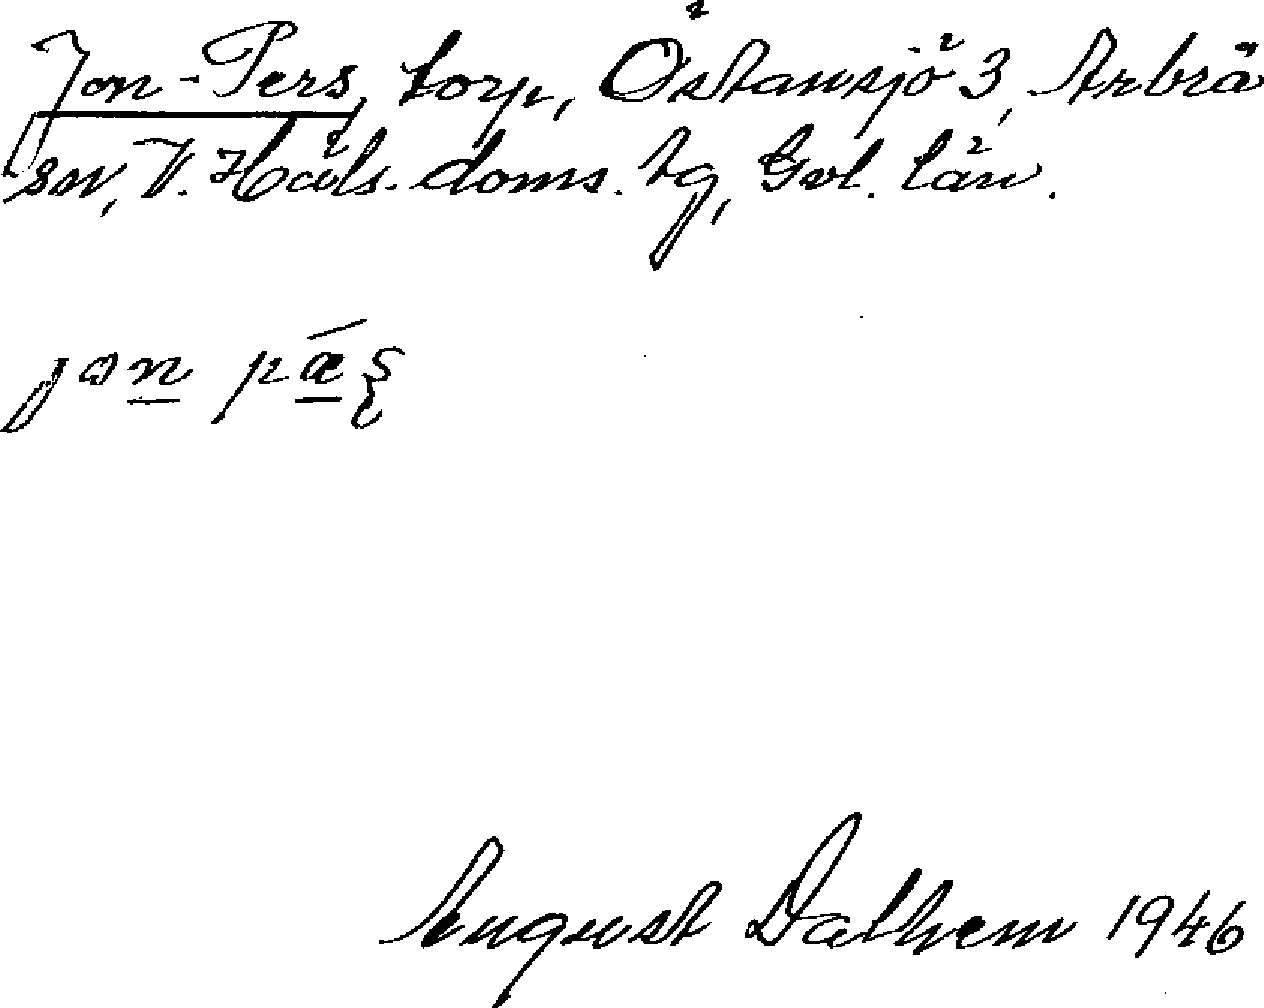 Jon-Pers, torp, Östansjö 3, Arbrå
sn, V. Häls. doms. tg, Gvl. län.
jon pæʂ
August Dalhem 1946